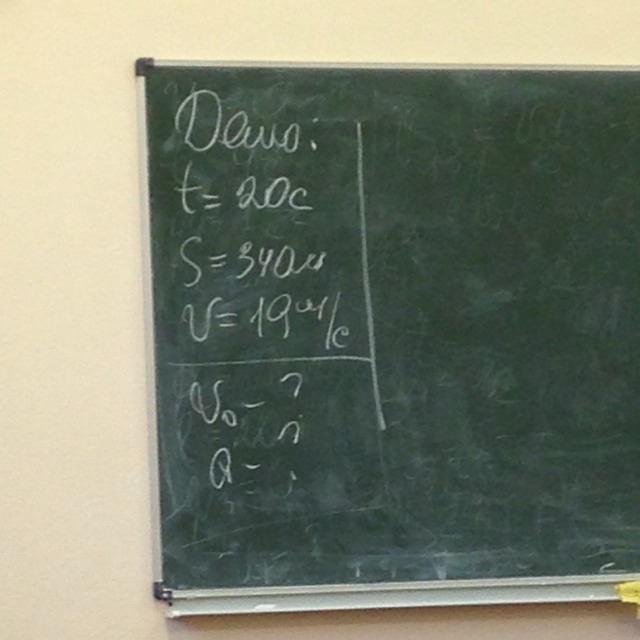 Дано:
t = 20с
S = 340м
V = 19м/с
V₀ - ?
a - ?